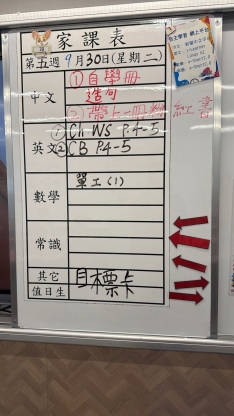 家課表
第五週 9月30日(星期二)
中文 ①自學冊
造句
②帶上一冊粉紅書
英文 ① Ch WS P.4-5
② CB P4-5
數學 單工(1)
常識
其它 目標卡
值日生